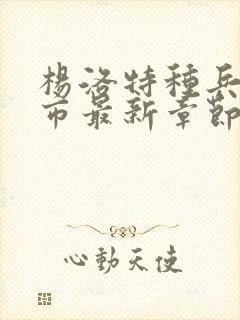 楊洛特種兵
市最新章節
心動天使